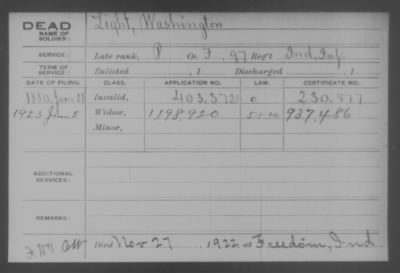 DEAD
NAME OF
SOLDIER:
Light, Washington
SERVICE:
Late rank, P Co. F, 97 Reg't Ind. Inf.
TERM OF
SERVICE:
Enlisted , 1 Discharged , 1
DATE OF FILING. CLASS. APPLICATION NO. LAW. CERTIFICATE NO.
1880, Jun. 28 Invalid, 403.372 0 230.877
1923 Jan. 5 Widow, 1,198.920 937.486
Minor,
ADDITIONAL
SERVICES:
REMARKS:
Died Nov 27, 1922 at Freedom, Ind.